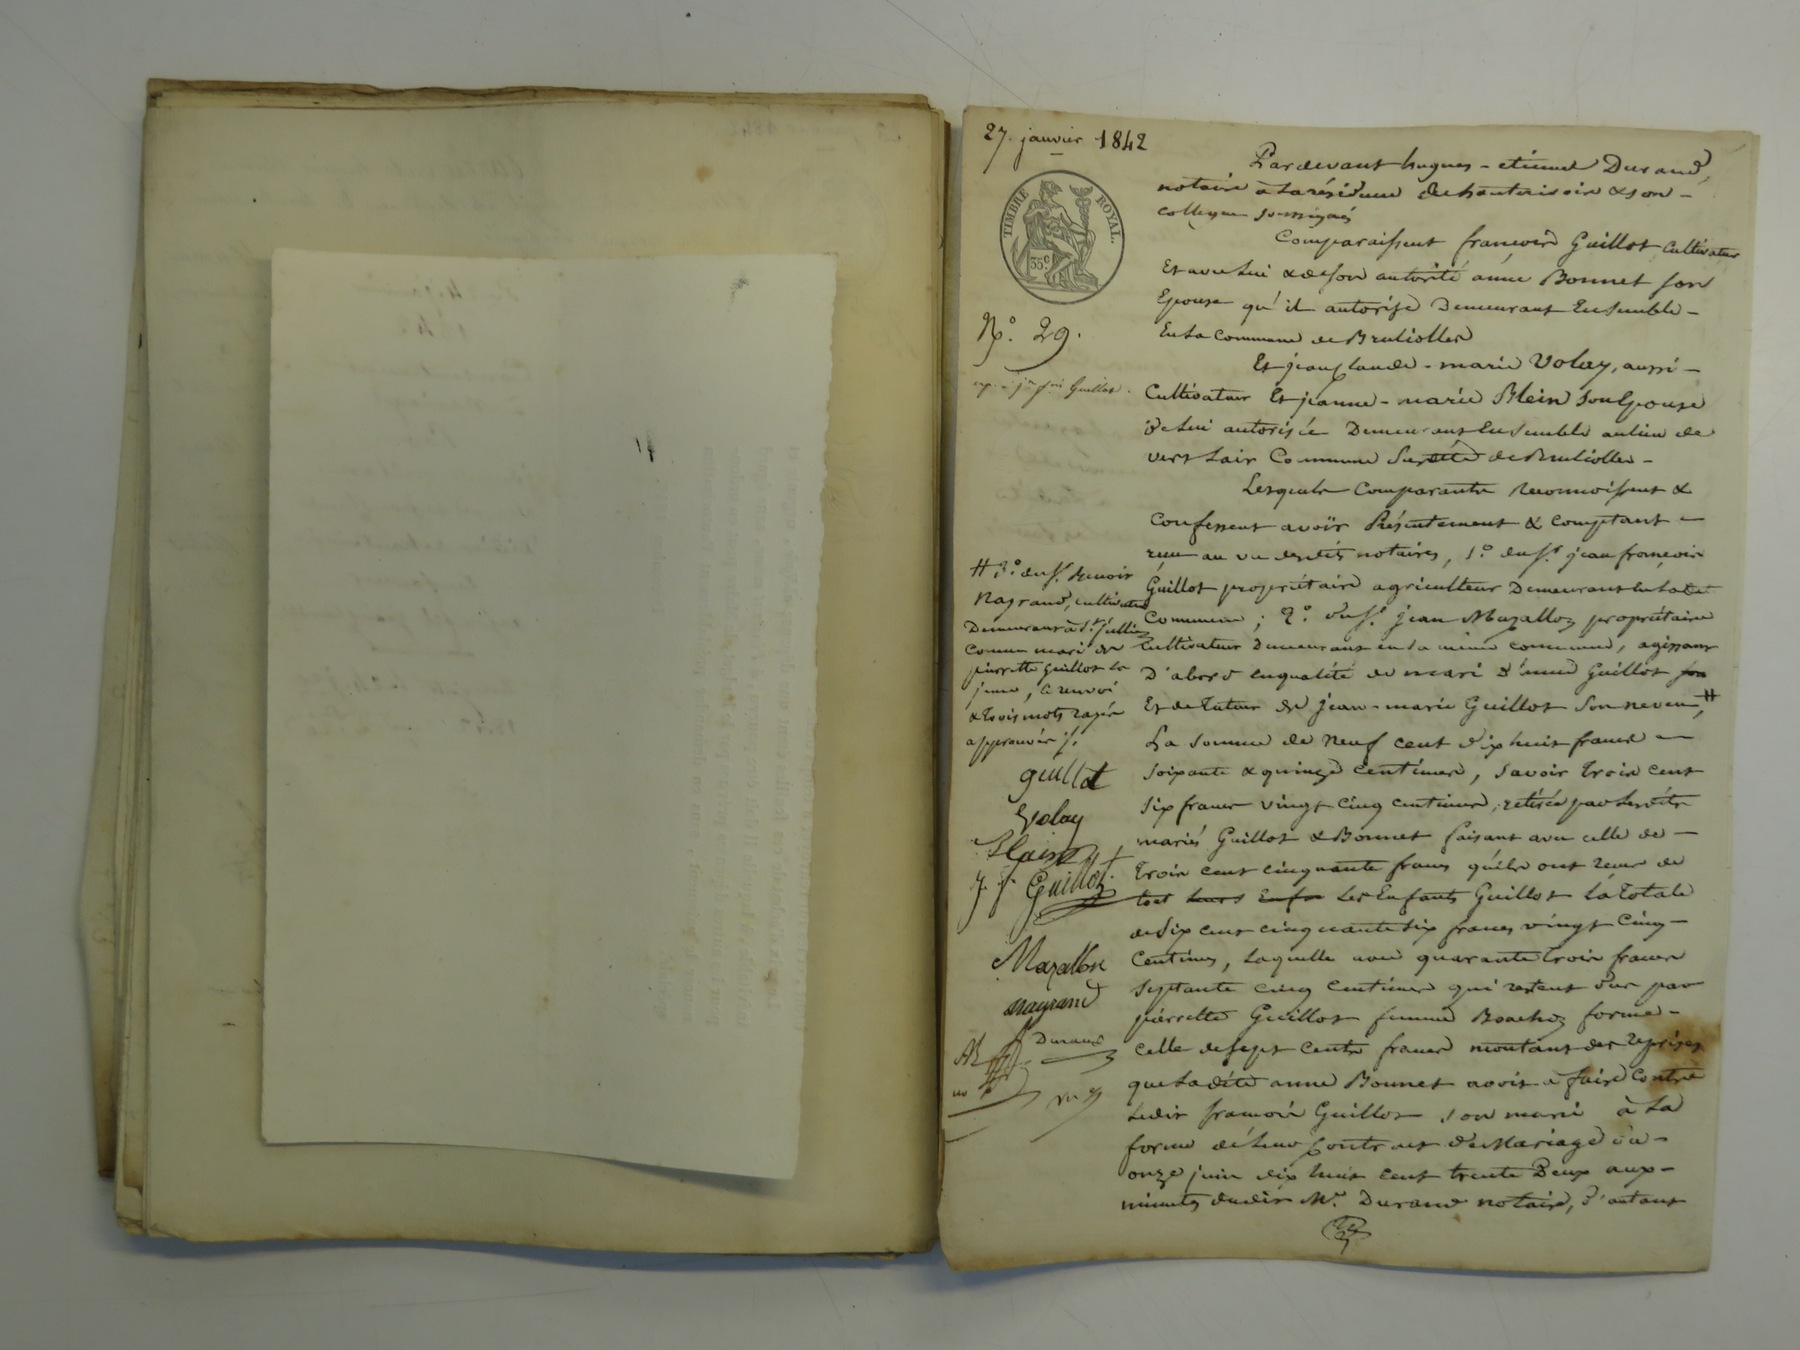 27. janvier 1842
TIMBRE ROYAL.
35 c.
N.° 29.
Guillot.
Pardevant hugues - etienne Durand,
notaire a la résidence de hauterivoir & son -
collegue soussignés
Comparaissent françois Guillot Cultivateur
Et avec lui & de son autorité anne Bonnet son
Epouse qu'il autorise Demeurant Ensemble -
En la Commune de Brulioller
Et jean claude - marie Volay, aussi -
Cultivateur Et jeanne - marie Blein son Epouse
de lui autorisée Demeurant Ensemble au lieu de
vers Lair Commune Susdite de Brulioller -
Lesquels Comparants reconnoissent &
Confessent avoir Présentement & Comptant -
reçu au vu desdits notaires, 1.° du S.r jean françois
Guillot propriétaire agriculteur Demeurant en ladite
Commune ; 2.° du S.r jean Mazallon propriétaire
Cultivateur Demeurant en la même commune, agissant
D'abord en qualité de mari d'anne Guillot son
Et de Tuteur de jean - marie Guillot son neveu, #
La somme de Neuf cent dix huit francs -
soixante & quinze Centimes, savoir Trois cent
six francs vingt cinq centimes, retirés par lesdits
mariés Guillot & Bonnet faisant avec celle de -
Trois cent cinquante francs qu'ils ont reçue de
tout leurs Enfan Les Enfants Guillot la Totale
de Six cent cinquante six francs vingt Cinq -
Centimes, Laquelle avec quarante Trois francs
septante cinq Centimes qui restent dus par
pierrette Guillot femme forme -
Celle de sept Cents francs montant des reprises
que ladite anne Bonnet avoit à faire Contre
Ledit françois Guillot son mari à la
forme de leur Contrat de Mariage du -
onze juin dix huit cent trente Deux aux -
minutes dudit M.e Durand notaire, d'autant
# 3.° du S.r
Nagrand, cultivateur
Demeurant à S.t Jullien
Comme mari de
pierrette Guillot la
jeune, le renvoi
& trois mots rayés
approuvés
guillot
Volay
Blein
J. f. Guillot
Mazallon
nagrand
Durand